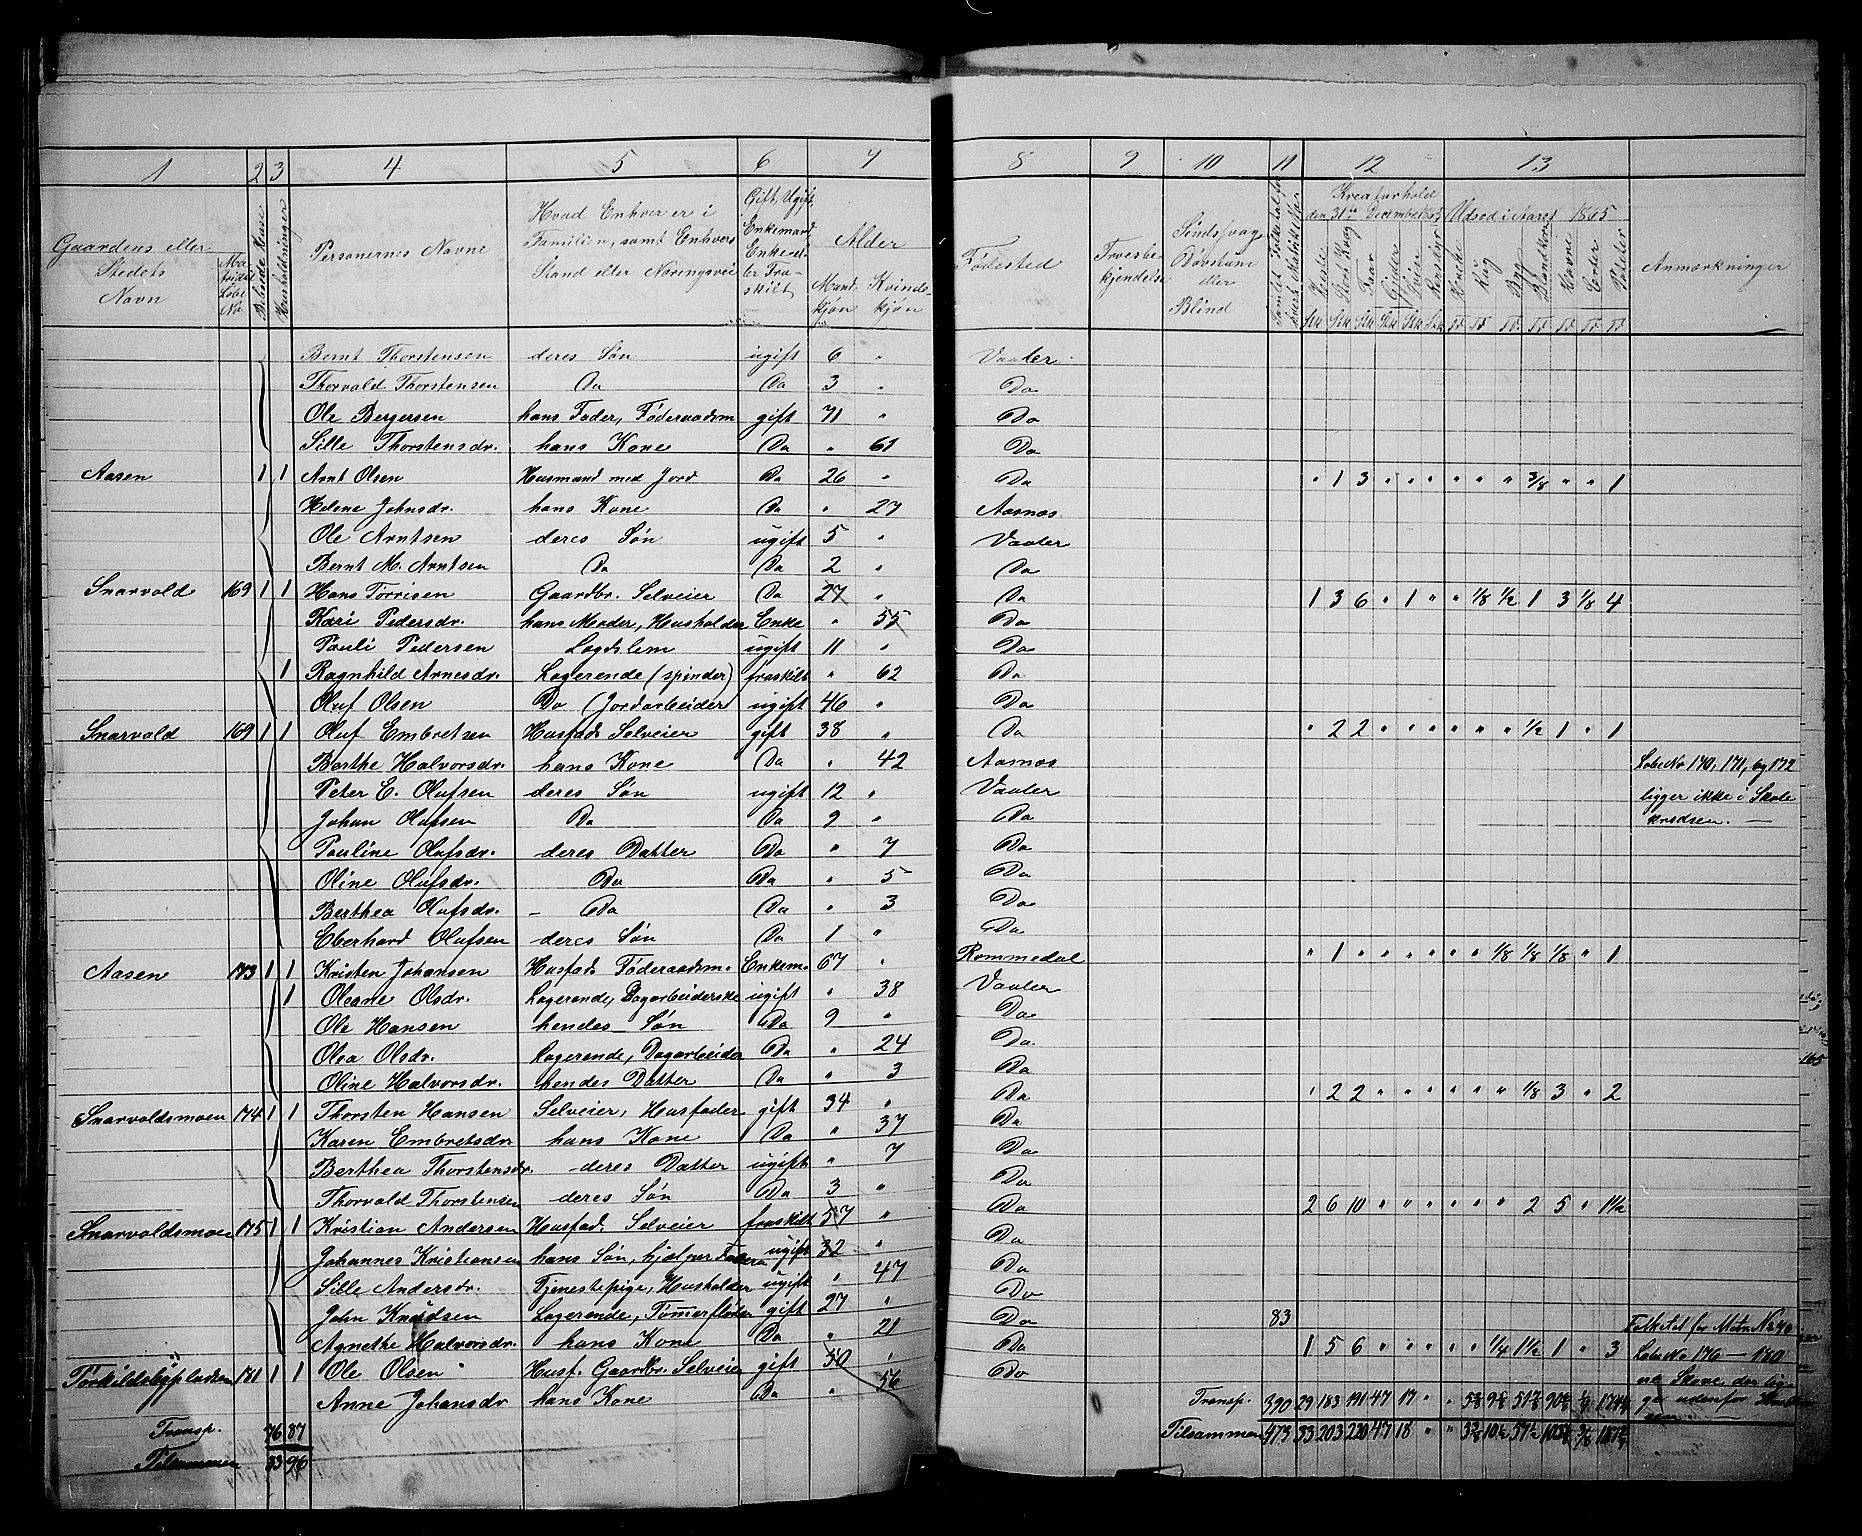 1 2 3 4 5 6 7 8 9 10 11 12 13
Gaardens eller Stedets Navn
Matrikul Løbe No
Bebodde Huse
Husholdninger
Personernes Navne
Hvad Enhver er i Familien, samt Enhvers Stand eller Næringsvei
Gift, Ugift, Enkemand, Enke eller Fraskilt
Alder
Mandkjøn Kvindekjøn
Fødested
Troesbekjendelse
Sindssvage Døvstum eller Blind
Kreaturhold den 31te December 1865
Udsæd i Aaret 1865
Heste Stort Kvæg Faar Gjeder Sviin Rensdyr Hvede Rug Byg Blandkorn Havre Erter Poteter
Stk Stk Stk Stk Stk Stk Td Td Td Td Td Td Td
Anmærkninger
Bernt Thorstensen deres Søn ugift 6 " Vaaler
Thorvald Thorstensen Do Do 3 " Do
Ole Bergersen hans Fader, Føderaadsm gift 71 " Do
Sille Thorstensdr. hans Kone Do " 61 Do
Aasen 1 1 Arnt Olsen Husmand med Jord Do 26 " Do " 1 3 " " " " " " 3/8 " " 1
Helene Johnsdr. hans Kone Do " 27 Aasnæs
Ole Arntsen deres Søn ugift 5 " Vaaler
Bernt M. Arntsen Do Do 2 " Do
Snarvold 169 1 1 Hans Torrisen Gaardbr. Selveier Do 27 " Do 1 3 6 " 1 " " 1/8 1/2 1 3 1/8 4
Kari Pedersdr. hans Moder, Husholder Enke " 55 Do
Pauli Pedersen Lægdslem ugift 11 " Do
1 Ragnhild Arnesdr. Logerende (spinder) fraskilt " 62 Do
Oluf Olsen Do (Jordarbeider ugift 46 " Do
Snarvold 169 1 1 Oluf Embretsen Husfad. Selveier gift 38 " Do " 2 2 " " " " " " 1/2 1 " 1
Berthe Halvorsdr. hans Kone Do " 42 Aasnæs Løbe No 170, 171, og 172
Peter E. Olufsen deres Søn ugift 12 " Vaaler ligger ikke i Skole
Johan Olufsen Do Do 9 " Do kredsen. —
Pauline Olufsdr. deres Datter Do " 7 Do
Oline Olufsdr. Do Do " 5 Do
Berthea Olufsdr. - Do Do " 3 Do
Eberhard Olufsen deres Søn Do 1 " Do
Aasen 173 1 1 Kristen Johansen Husfad. Føderaadsm. Enkem. 67 " Rommedal " 1 " " " " " " 1/8 1/8 1/8 " 1
1 Oleane Olsdr. Logerende, Dagarbeiderske ugift " 38 Vaaler
Ole Hansen hendes Søn Do 9 " Do
Olea Olsdr. Logerende, Dagarbeider Do " 24 Do
Oline Halvorsdr. hendes Datter Do " 3 Do
Snarvoldsmoen 174 1 1 Thorsten Hansen Selveier, Husfader gift 34 " Do " 2 2 " " " " " " 1/8 3 " 2
Karen Embretsdr. hans Kone Do " 37 Do
Berthea Thorstensdr. deres Datter ugift " 7 Do
Thorvald Thorstensen deres Søn Do 3 " Do
Snarvoldsmoen 175 1 1 Kristian Andersen Husfad. Selveier fraskilt 57 " Do 2 6 10 " " " " " " 2 5 " 1 1/2
Johannes Kristiansen hans Søn, hjælper Faderen ugift 32 " Do
Sille Andersdr. Tjenestepige, Husholder ugift " 47 Do
John Knudsen Logerende, Tømmerfløder gift 27 " Do
Agnethe Halvorsdr. hans Kone Do " 21 Do 83 Folketal for Matr. No 40
Torkildsbypladsen 181 1 1 Ole Olsen Husf. Gaardbr. Selveier gift 50 " Do 1 5 6 " " " " 1/4 1 1/2 1 " 3 Løbe No 176 — 180
Anne Johansdr hans Kone Do " 56 Do er Skove, der lig
Transp. 76 87 Transp. 390 29 183 191 47 17 " " ge udenfor
Tilsammen 83 96 Tilsammen 473 33 203 220 47 18 " "